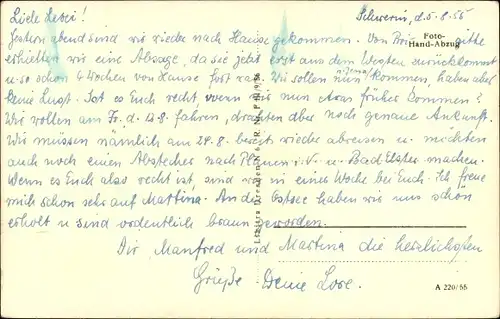 Liebe Lesei! Schwerin, d. 5.8.55
Gestern abend sind wir wieder nach Hause gekommen. Von Brigitte
Foto-
Hand-Abzug
erhielten wir eine Absage, da sie jetzt erst aus dem Westen zurückkommt
u. so schon 6 Wochen von Hause fort war. Wir sollen nun kommen, haben aber
keine Lust. Ist es Euch recht, wenn wir nun etwas früher kommen?
Wir wollen am Fr. d. 12.8. fahren, drahten aber noch genaue Ankunft.
Wir müssen nämlich am 24.8. bereits wieder abreisen u. möchten
auch noch einen Abstecher nach Plauen i.V. u. Bad Elster machen.
Wenn es Euch also recht ist, sind wir in einer Woche bei Euch. Ich freue
mich schon sehr auf Martina. An der Ostsee haben wir uns schön
erholt u. sind ordentlich braun geworden.
Dir, Manfred und Martina die herzlichsten
Grüße Deine Lore.
A 220/55